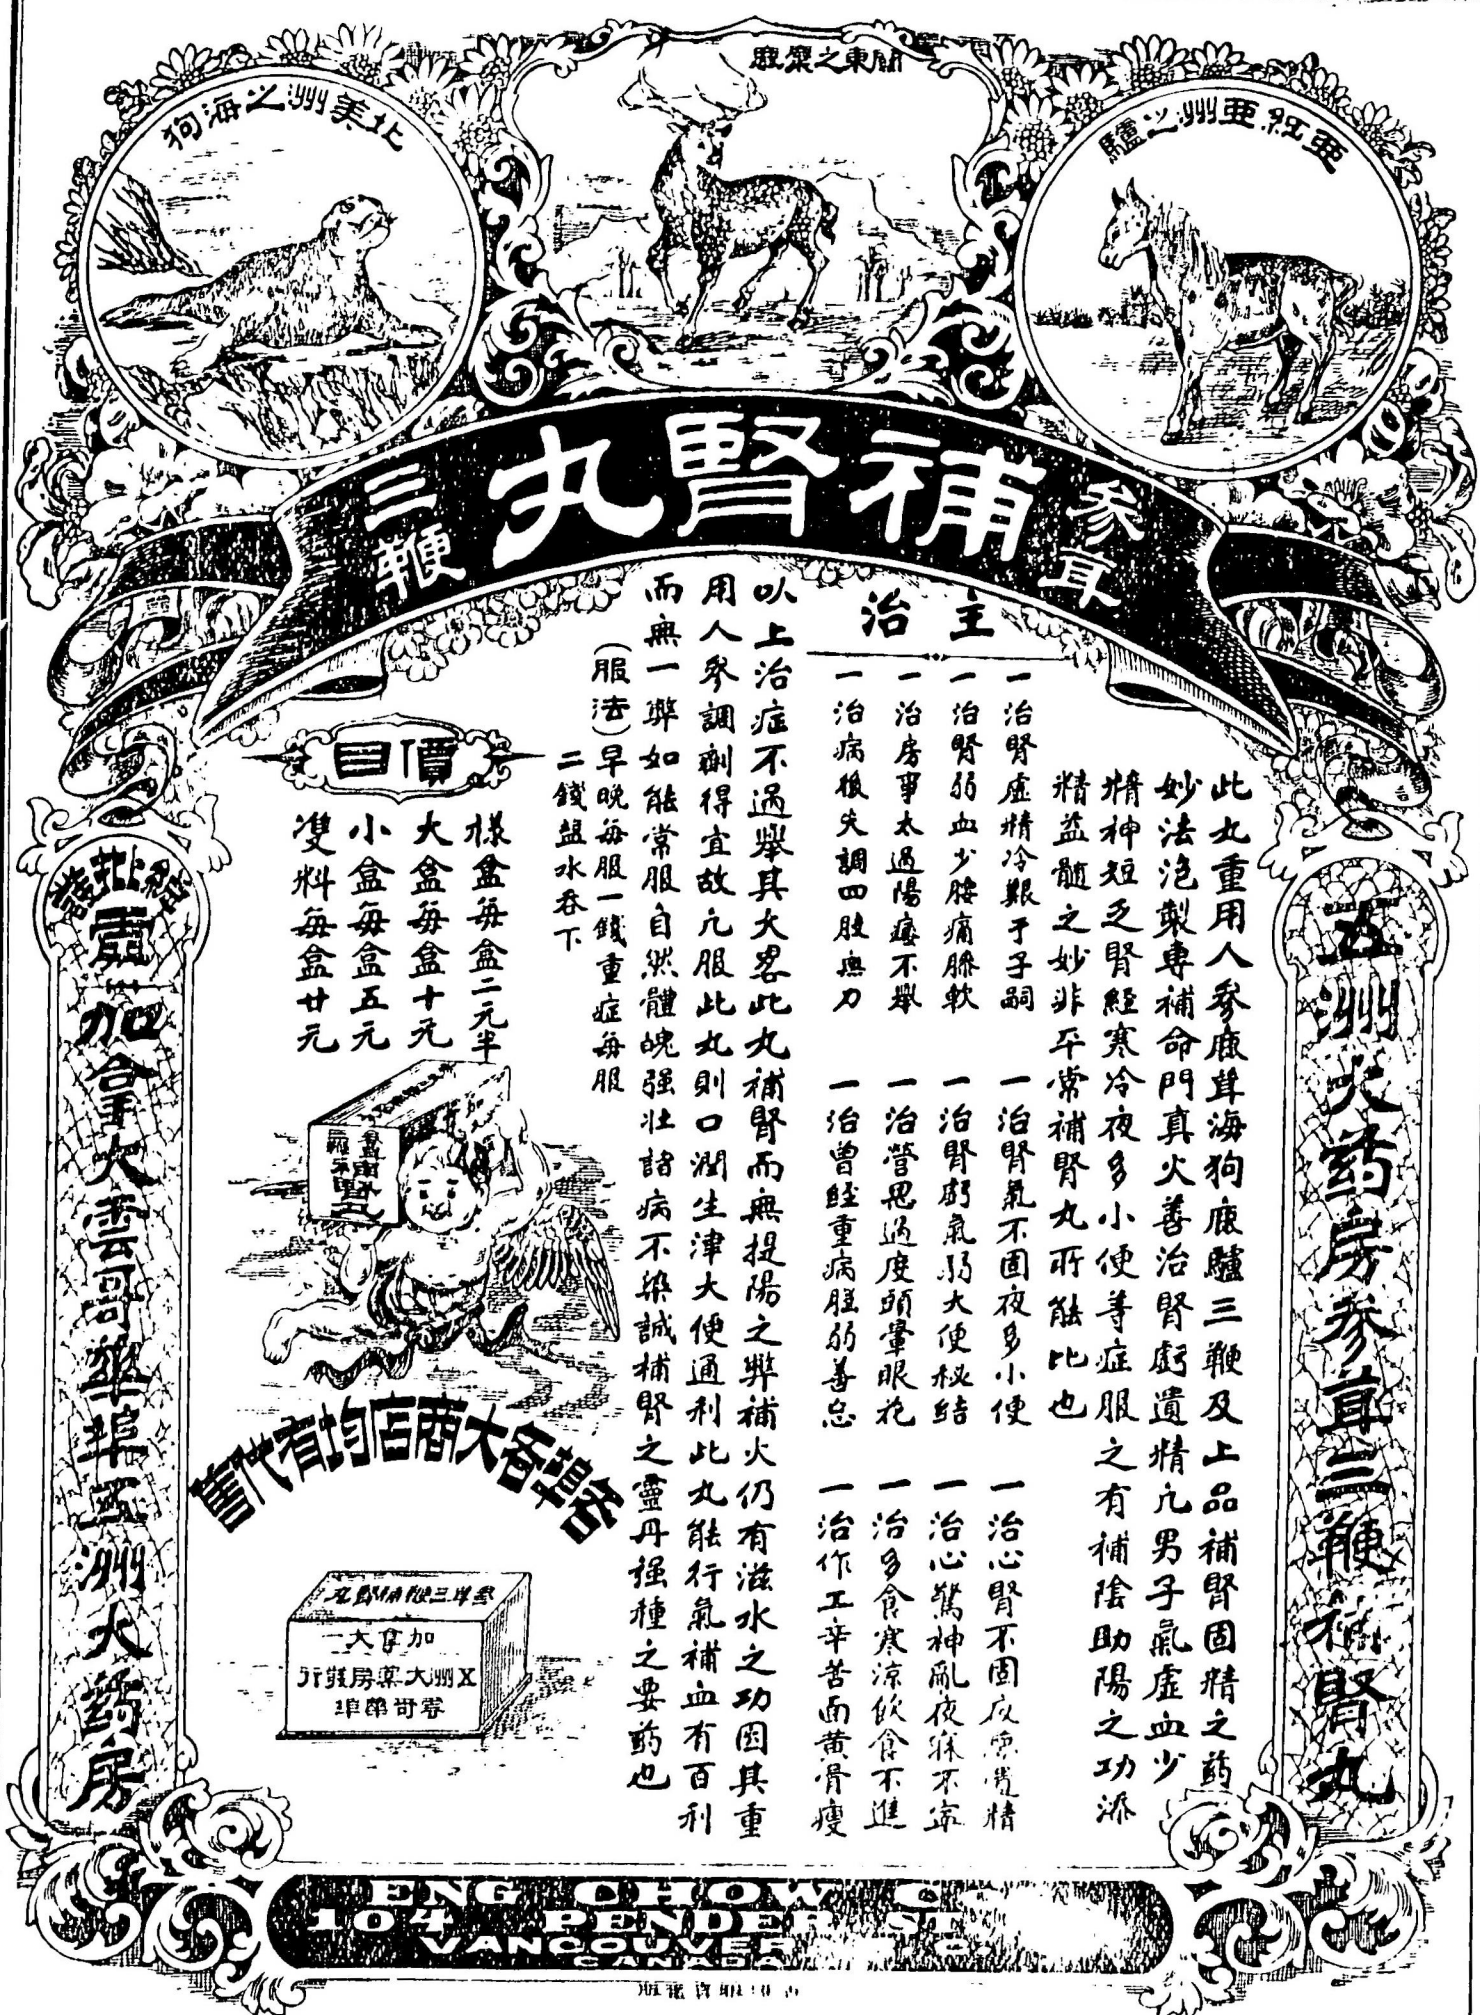 北美洲之海狗
關東之麋鹿
亜紅亜州之驢
參茸
補腎丸
三鞭
五洲大药房參茸三鞭補腎丸
此丸重用人參鹿茸海狗鹿驢三鞭及上品補腎固精之药
妙法泡製專補命門真火善治腎虧遺精凢男子氣虛血少
精神短乏腎經寒冷夜多小便等症服之有補陰助陽之功添
精益髓之妙非平常補腎丸所能比也
主治
一治腎虛精冷艱于子嗣
一治腎氣不固夜多小便
一治心腎不固夜夢遺精
一治腎弱血少腰痛膝軟
一治腎虧氣弱大便秘結
一治心驚神亂夜寐不寧
一治房事太過陽痿不舉
一治營思過度頭暈眼花
一治多食寒涼飲食不進
一治病後失調四肢無力
一治曾經重病腦弱善忘
一治作工辛苦面黃骨瘦
以上治症不過舉其大畧此丸補腎而無提陽之弊補火仍有滋水之功因其重
用人參調劑得宜故凢服此丸則口潤生津大便通利此丸能行氣補血有百利
而無一弊如能常服自然體魄强壮諸病不染誠補腎之靈丹强種之要药也
(服法)早晚每服一錢重症每服
二錢塩水吞下
價目
樣盒每盒二元半
大盒每盒十元
小盒每盒五元
雙料每盒廿元
各埠各大商店均有代售
參茸三鞭補腎丸
加拿大
五州大藥房發行
雲哥華埠
總批發處
加拿大雲哥華埠五洲大药房
ENG CHOW
104 PENDER ST
VANCOUVER
CANADA